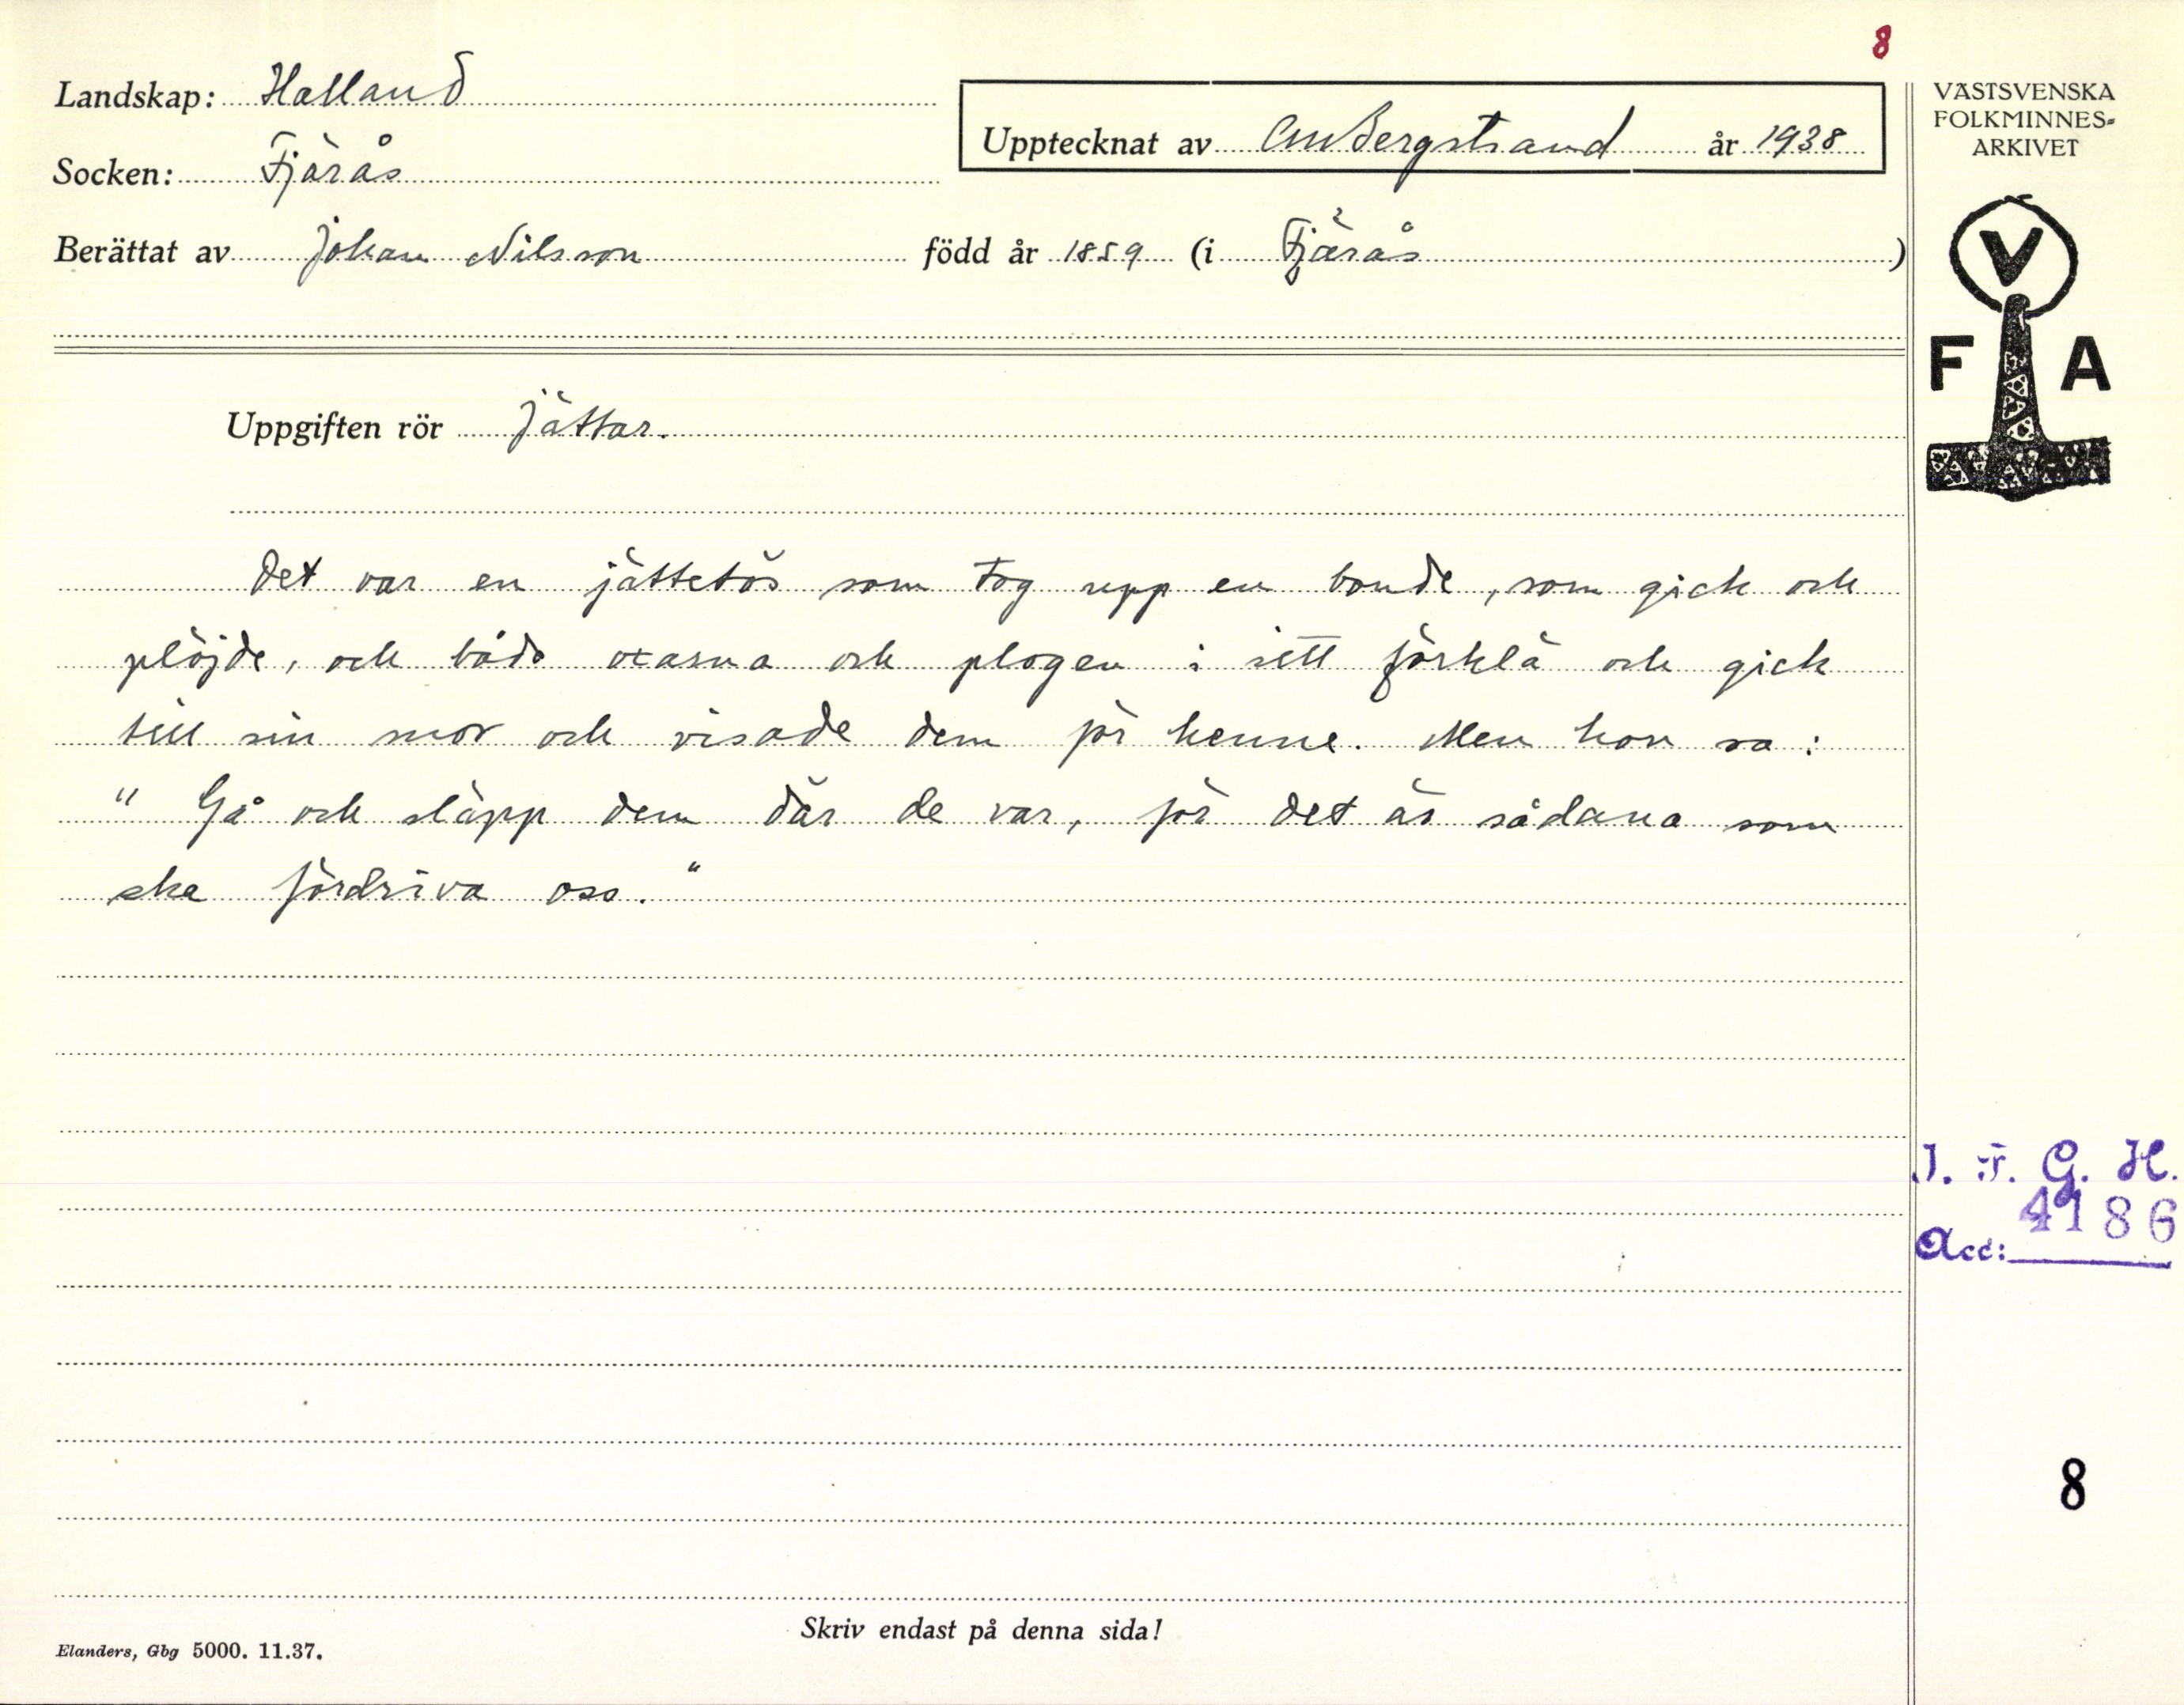 8
Landskap: Halland
Upptecknat av CMBergstrand år 1938
Socken: Fjärås
Berättat av Johan Nilsson född år 1859 (i Fjärås)
VÄSTSVENSKA
FOLKMINNES-
ARKIVET
V
F A
Uppgiften rör Jättar.
Det var en jättetös som tog upp en bonde, som gick och
plöjde, och både oxarna och plogen i sitt förklä och gick
till sin mor och visade dem för henne. Men hon sa:
"Gå och släpp dem där de var, för det är sådana som
ska fördriva oss."
I. F. G. H.
4186
Acc:
8
Skriv endast på denna sida!
Elanders, Gbg 5000. 11.37.